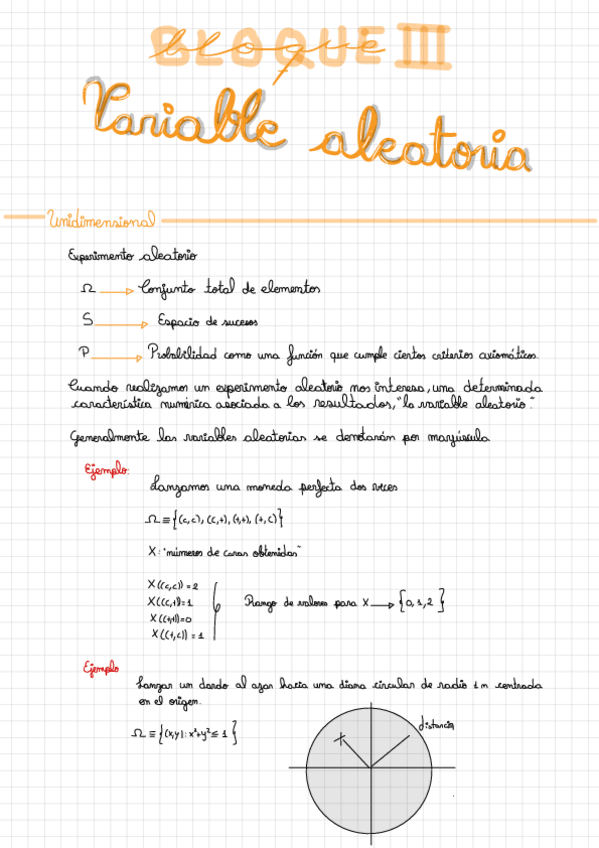 BLOQUE III
bloque
Variable aleatoria
Unidimensional
Experimento aleatorio
Ω → Conjunto total de elementos
S → Espacio de sucesos
P → Probabilidad como una función que cumple ciertos criterios axiomáticos.
Cuando realizamos un experimento aleatorio nos interesa, una determinada
característica numérica asociada a los resultados, "la variable aleatoria".
Generalmente las variables aleatorias se denotarán por mayúscula
Ejemplo:
Lanzamos una moneda perfecta dos veces
Ω ≡ {(c,c), (c,+), (+,+), (+,c)}
X: "números de caras obtenidas"
X((c,c)) = 2
X((c,+)) = 1
X((+,+)) = 0
X((+,c)) = 1
Rango de valores para X → {0,1,2}
Ejemplo
Lanzar un dardo al azar hacia una diana circular de radio 1m centrada
en el origen.
Ω ≡ {(x,y): x²+y² ≤ 1}
distancia